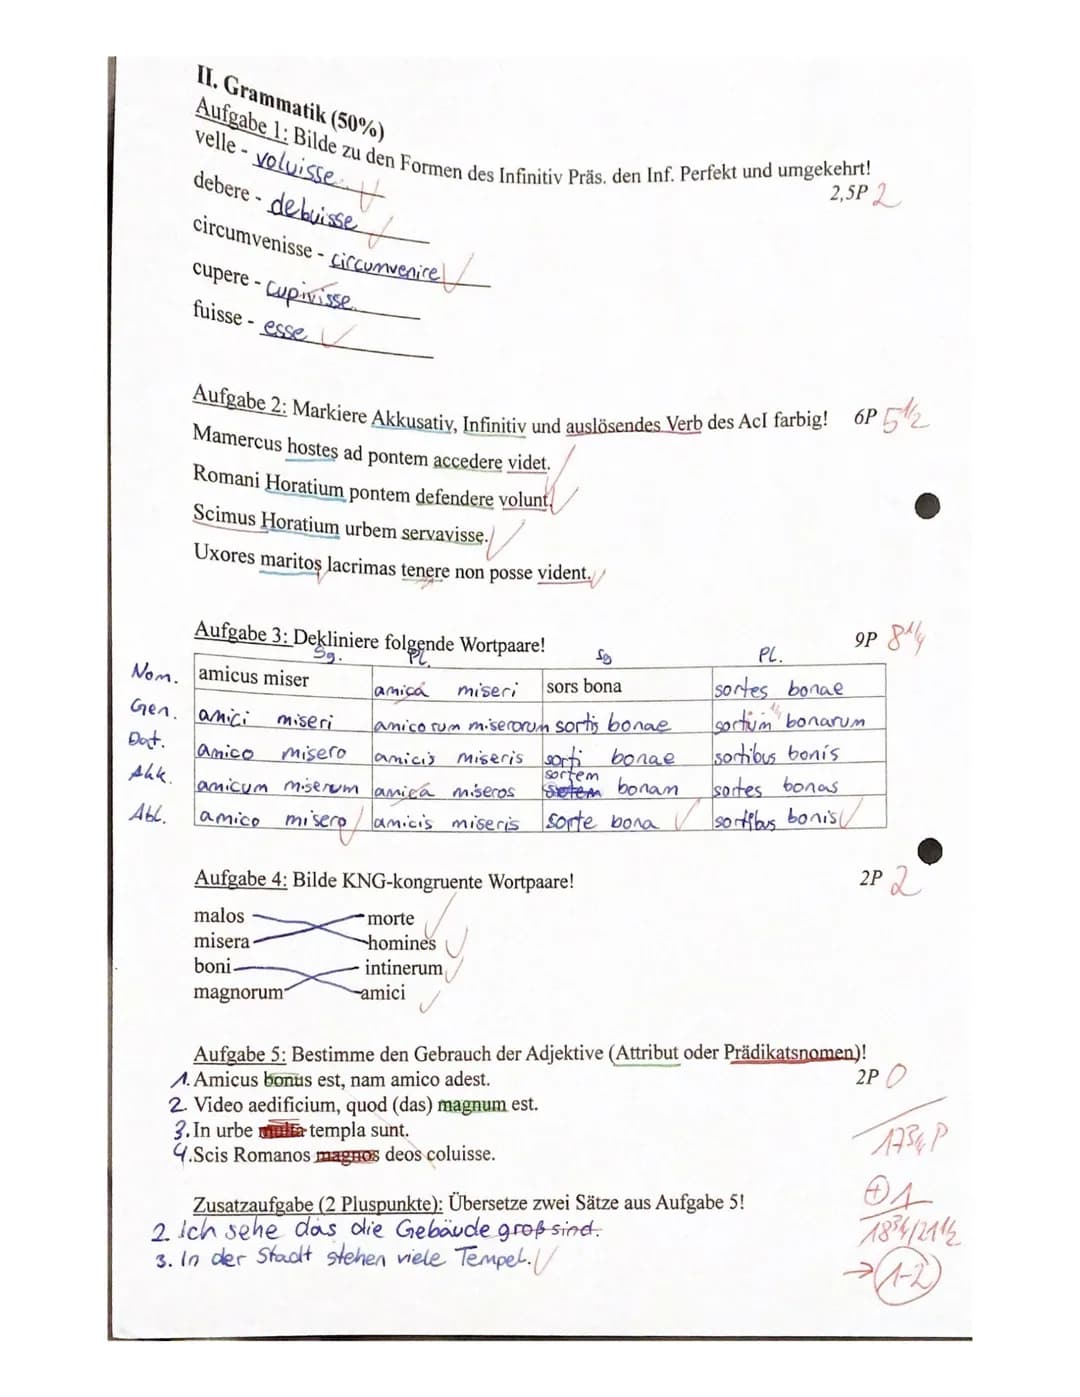 II. Grammatik (50%)
Aufgabe 1: Bilde zu den Formen des Infinitiv Präs. den Inf. Perfekt und umgekehrt!
2,5P 2
velle - voluisse
debere - debuisse
circumvenisse - circumvenire
cupere - cupivisse
fuisse - esse
Aufgabe 2: Markiere Akkusativ, Infinitiv und auslösendes Verb des AcI farbig! 6P 5 1/2
Mamercus hostes ad pontem accedere videt.
Romani Horatium pontem defendere volunt.
Scimus Horatium urbem servavisse.
Uxores maritos lacrimas tenere non posse vident.
Aufgabe 3: Dekliniere folgende Wortpaare! 9P 8 1/4
Sg. Pl. Sg Pl.
Nom. amicus miser amica miseri sors bona sortes bonae
Gen. amici miseri amicorum miserorum sortis bonae sortum bonarum
Dat. amico misero amicis miseris sorti bonae sortibus bonis
sortem
Akk. amicum miserum amica miseros bonam sortes bonas
Abl. amico misero amicis miseris sorte bona sortibus bonis
Aufgabe 4: Bilde KNG-kongruente Wortpaare! 2P 2
malos morte
misera homines
boni intinerum
magnorum amici
Aufgabe 5: Bestimme den Gebrauch der Adjektive (Attribut oder Prädikatsnomen)!
2P 0
1. Amicus bonus est, nam amico adest.
2. Video aedificium, quod (das) magnum est.
3. In urbe multa templa sunt.
4. Scis Romanos magnos deos coluisse.
17 3/4 P
Zusatzaufgabe (2 Pluspunkte): Übersetze zwei Sätze aus Aufgabe 5!
+ 1
2. Ich sehe das die Gebäude groß sind.
18 3/4 / 21 1/2
3. In der Stadt stehen viele Tempel.
→ 1-2